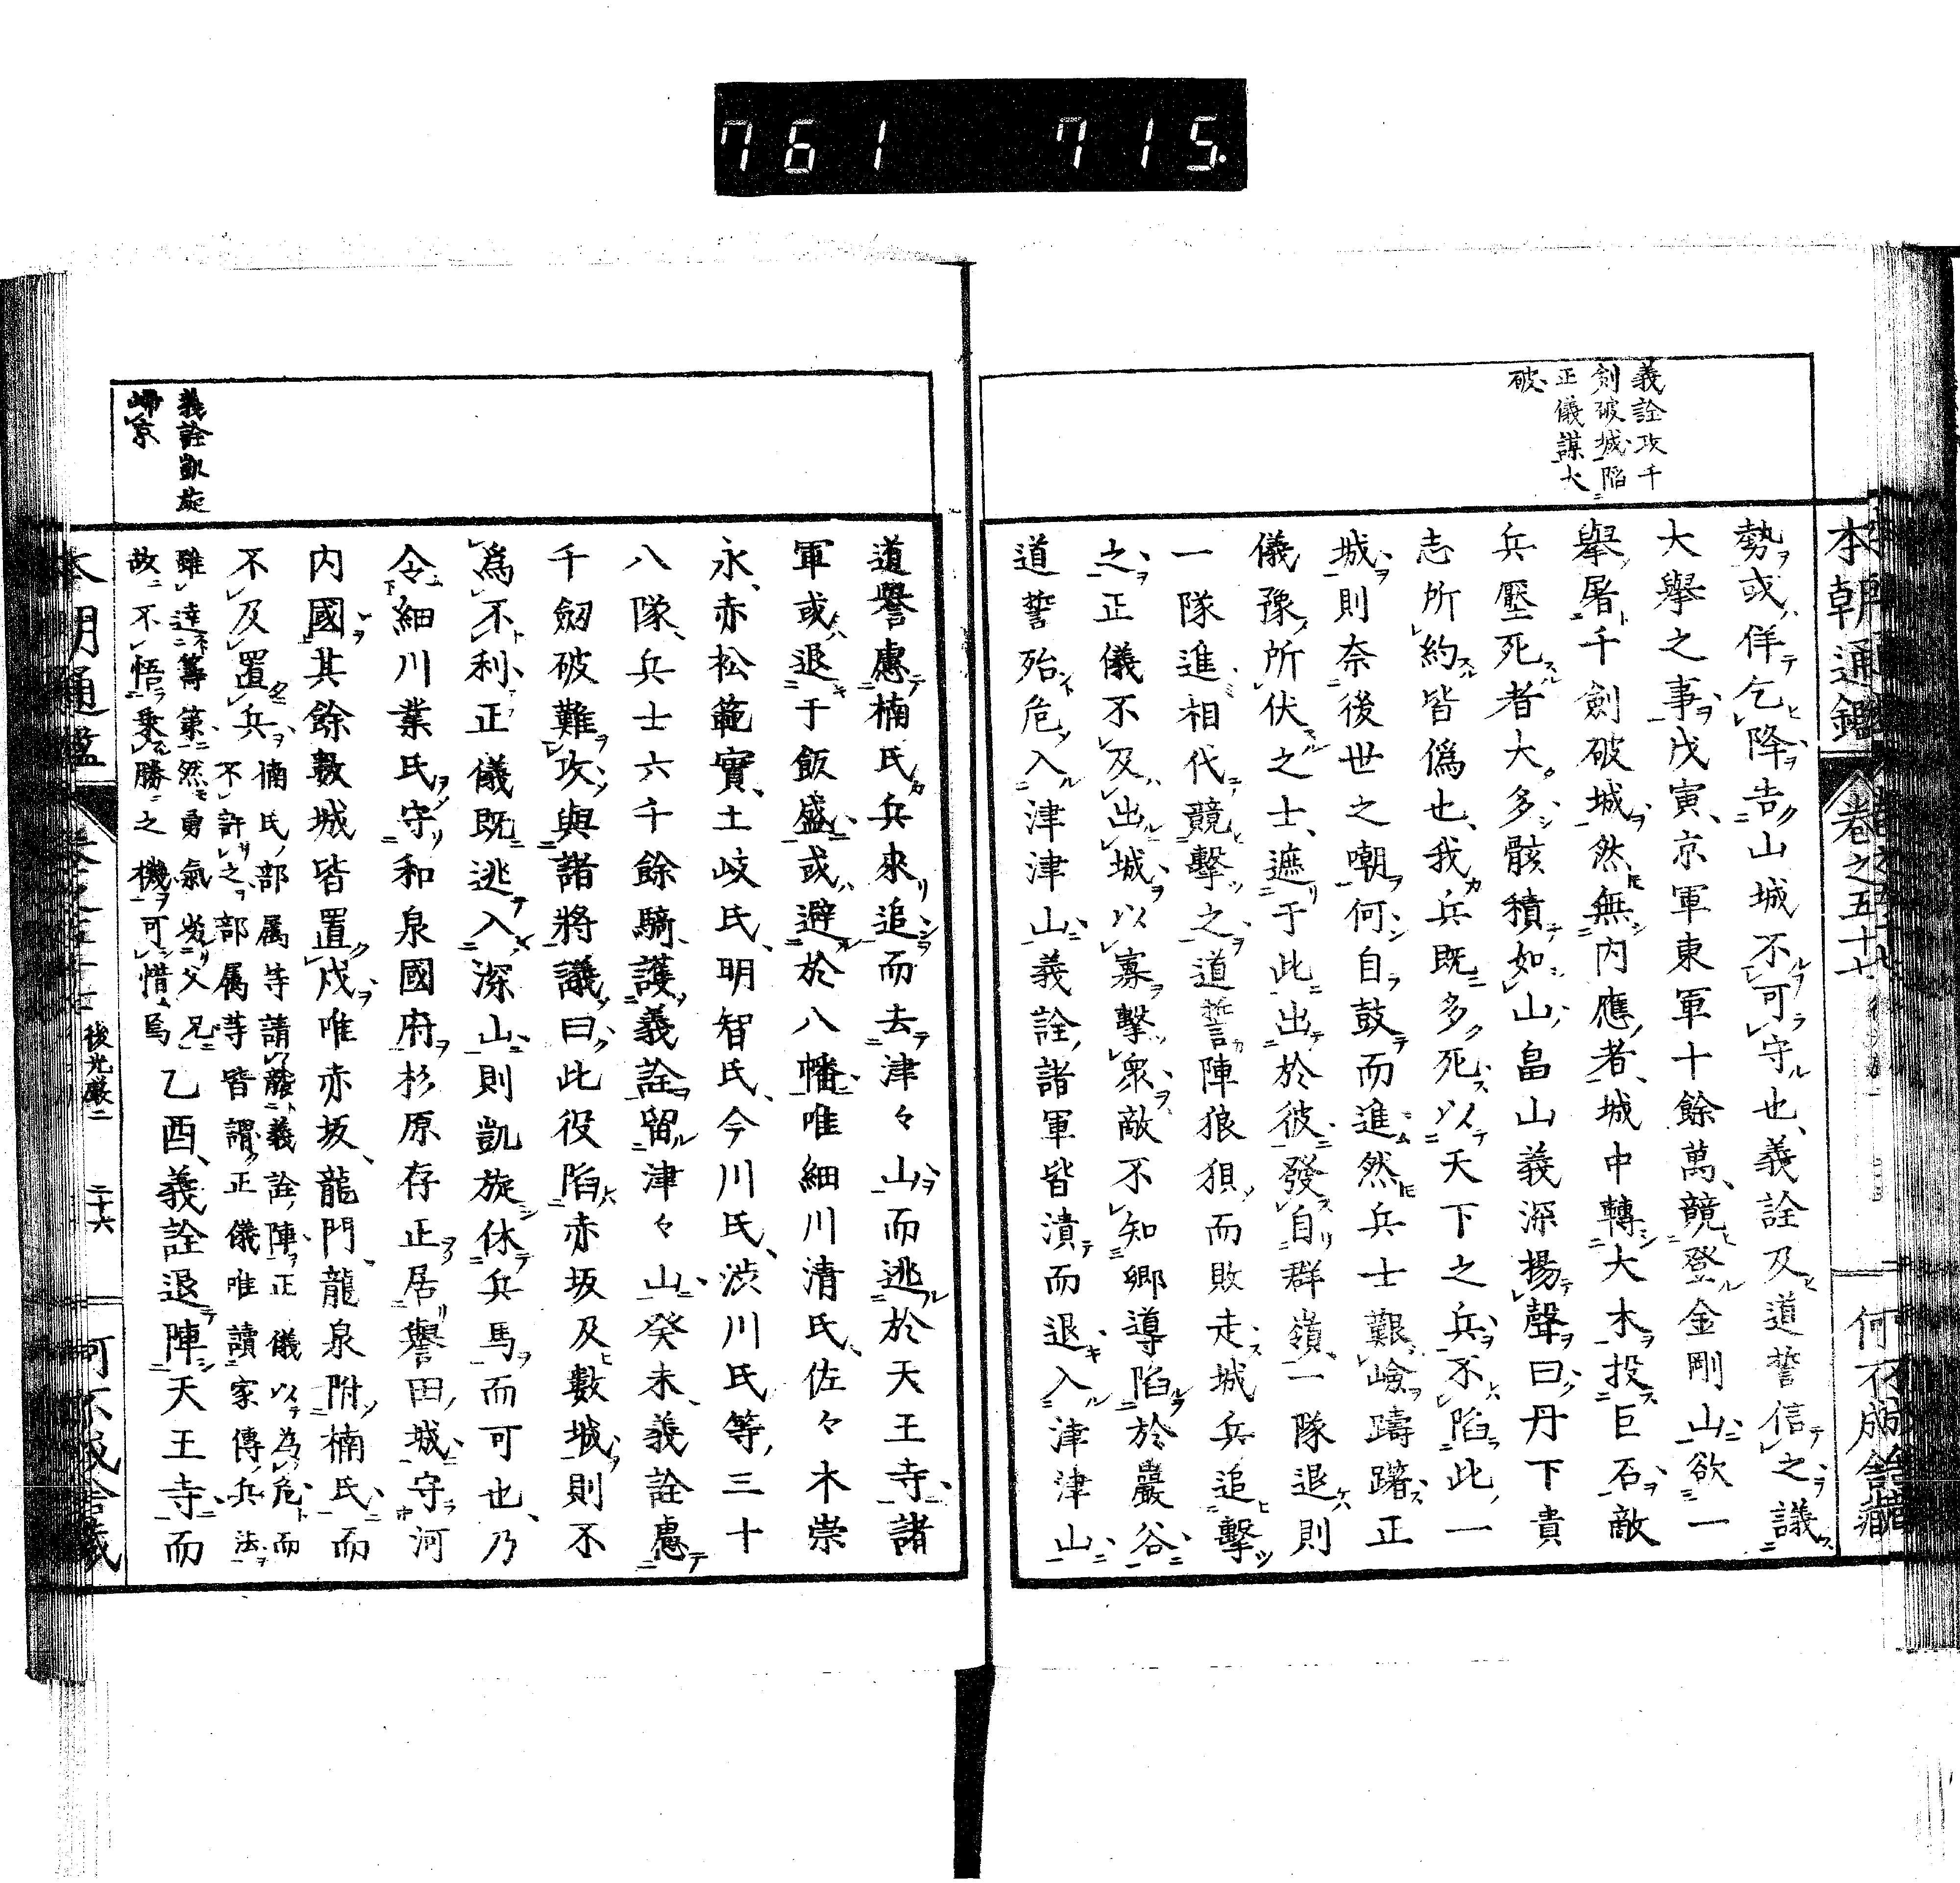 761 715.
本朝通鑑 卷之五十七 何不成舎藏
義詮攻千
剣破城陥
正儀謀大
破
勢或佯乞降告山城不可守也義詮及道誓信之議
大擧之事戊寅京軍東軍十餘萬競登金剛山欲一
擧屠千剣破城然無内應者城中轉大木投巨石敵
兵壓死者大多骸積如山畠山義深揚聲曰丹下貴
志所約皆偽也我兵既多死以天下之兵不陥此一
城則奈後世之嘲何自鼓而進然兵士艱嶮躊躇正
儀豫所伏之士遮于此出於彼發自群嶺一隊退則
一隊進相代競擊之道誓陣狼狽而敗走城兵追擊
之正儀不及出城以寡擊衆敵不知郷導陥於巖谷
道誓殆危入津津山義詮諸軍皆潰而退入津津山
道譽慮楠氏兵來追而去津々山而逃於天王寺諸
軍或退于飯盛或避於八幡唯細川清氏佐々木崇
永赤松範實土岐氏明智氏今川氏渋川氏等三十
八隊兵士六千餘騎護義詮留津々山癸未義詮慮
千剱破難攻與諸將議曰此役陥赤坂及數城則不
為不利正儀既逃入深山則凱旋休兵馬而可也乃
令細川業氏守和泉國府杉原存正居譽田城守河
内國其餘數城皆置戍唯赤坂龍門龍泉附楠氏而
不及置兵
楠氏部属等請義詮陣正儀以為危而
不許之部属等皆謂正儀唯讀家傳兵法
雖達等第然勇氣劣父兄
故不悟乗勝之機可惜焉
乙酉義詮退陣天王寺而
義詮凱旋
歸京
本朝通鑑 後光厳二 二十六 何不成舎藏